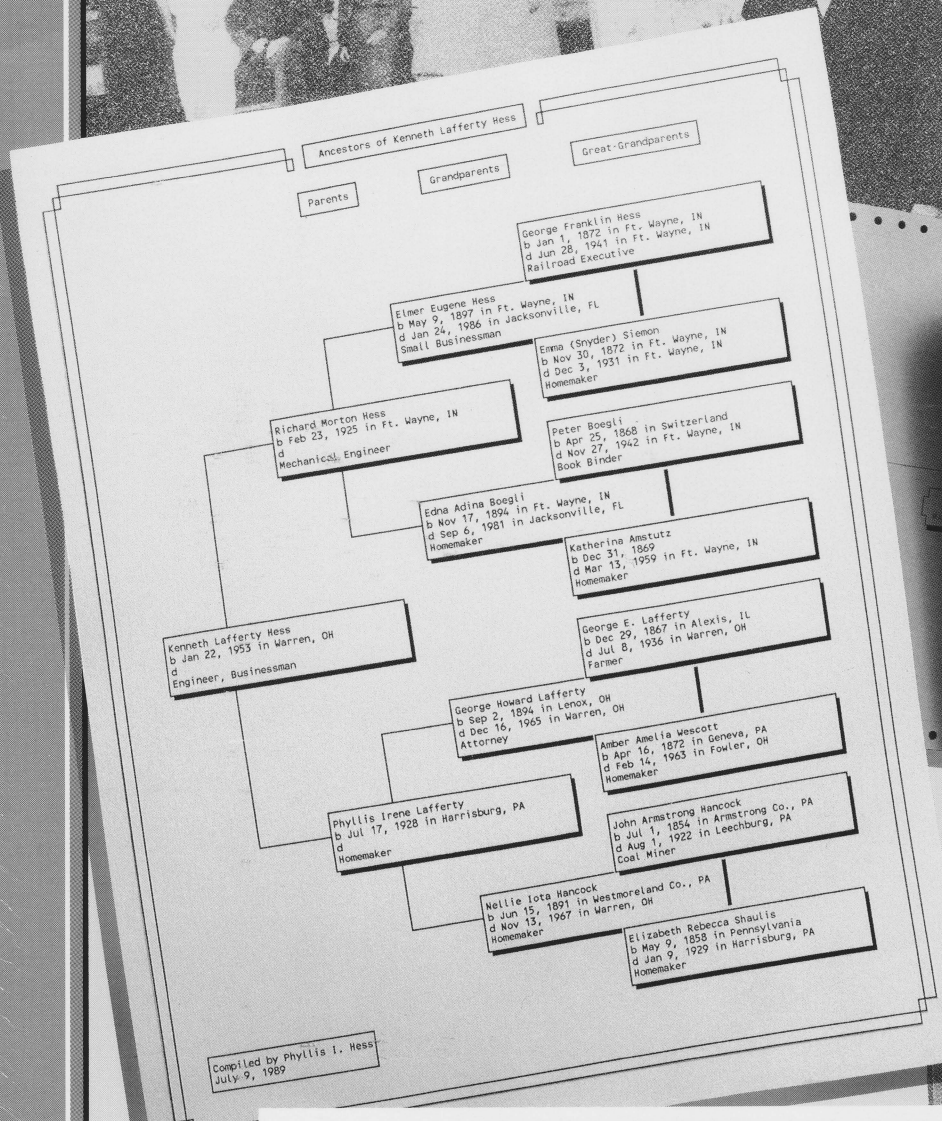 Ancestors of Kenneth Lafferty Hess
Parents
Grandparents
Great-Grandparents
George Franklin Hess
b Jan 1, 1872 in Ft. Wayne, IN
d Jun 28, 1941 in Ft. Wayne, IN
Railroad Executive
Elmer Eugene Hess
b May 9, 1897 in Ft. Wayne, IN
d Jan 24, 1986 in Jacksonville, FL
Small Businessman
Emma (Snyder) Siemon
b Nov 30, 1872 in Ft. Wayne, IN
d Dec 3, 1931 in Ft. Wayne, IN
Homemaker
Richard Morton Hess
b Feb 23, 1925 in Ft. Wayne, IN
d
Mechanical Engineer
Peter Boegli
b Apr 25, 1868 in Switzerland
d Nov 27, 1942 in Ft. Wayne, IN
Book Binder
Edna Adina Boegli
b Nov 17, 1894 in Ft. Wayne, IN
d Sep 6, 1981 in Jacksonville, FL
Homemaker
Katherina Amstutz
b Dec 31, 1869
d Mar 13, 1959 in Ft. Wayne, IN
Homemaker
Kenneth Lafferty Hess
b Jan 22, 1953 in Warren, OH
d
Engineer, Businessman
George E. Lafferty
b Dec 29, 1867 in Alexis, IL
d Jul 8, 1936 in Warren, OH
Farmer
George Howard Lafferty
b Sep 2, 1894 in Lenox, OH
d Dec 16, 1965 in Warren, OH
Attorney
Amber Amelia Wescott
b Apr 16, 1872 in Geneva, PA
d Feb 14, 1963 in Fowler, OH
Homemaker
Phyllis Irene Lafferty
b Jul 17, 1928 in Harrisburg, PA
d
Homemaker
John Armstrong Hancock
b Jul 1, 1854 in Armstrong Co., PA
d Aug 1, 1922 in Leechburg, PA
Coal Miner
Nellie Iota Hancock
b Jun 15, 1891 in Westmoreland Co., PA
d Nov 13, 1967 in Warren, OH
Homemaker
Elizabeth Rebecca Shaulis
b May 9, 1858 in Pennsylvania
d Jan 9, 1929 in Harrisburg, PA
Homemaker
Compiled by Phyllis I. Hess
July 9, 1989